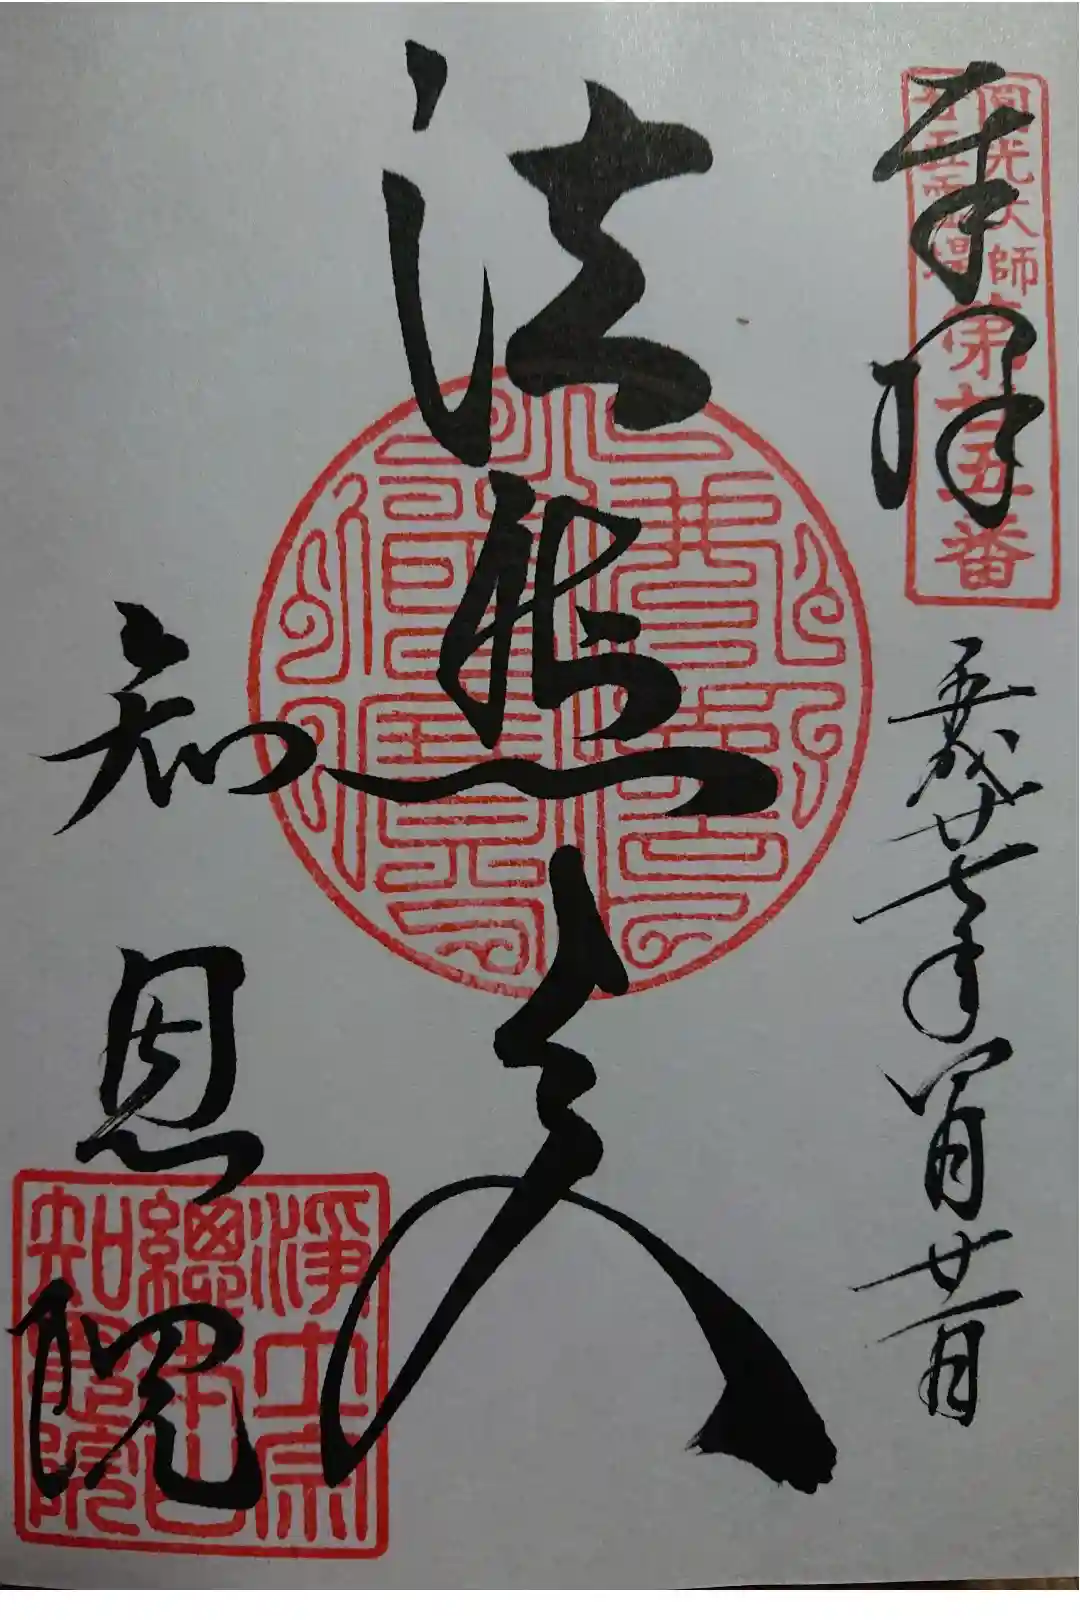 圓光大師
廿五霊場
第廿五番
奉拝
平成廿七年八月廿一日
法然上人
知恩院
淨土宗
總本山
知恩院